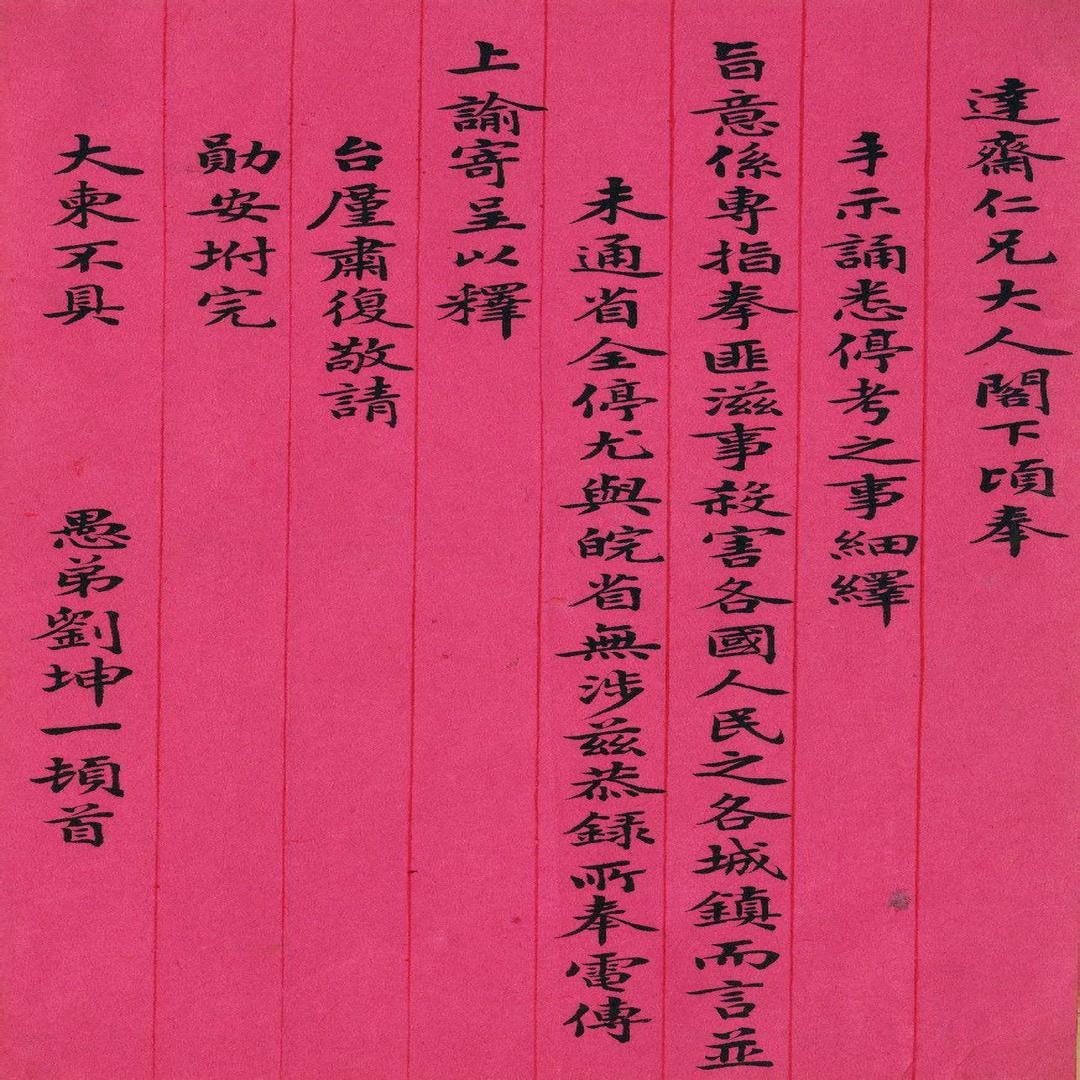 達齋仁兄大人閣下頃奉
手示誦悉停考之事細繹
旨意係專指拳匪滋事殺害各國人民之各城鎮而言並
未通省全停尤與皖省無涉茲恭録所奉電傳
上諭寄呈以釋
台廑肅復敬請
勛安坿完
大柬不具
愚弟劉坤一頓首